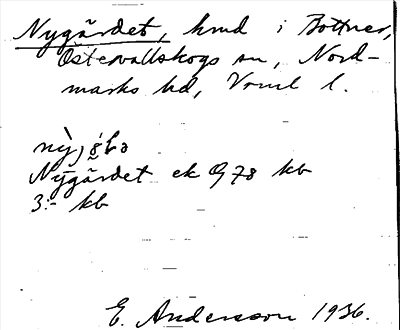 Nygärdet, hmd i Bottner,
Östervallskogs sn, Nord-
marks hd, Vrml l.
Nygärdet ek G 78 kb
3:- kb
E. Andersson 1936.